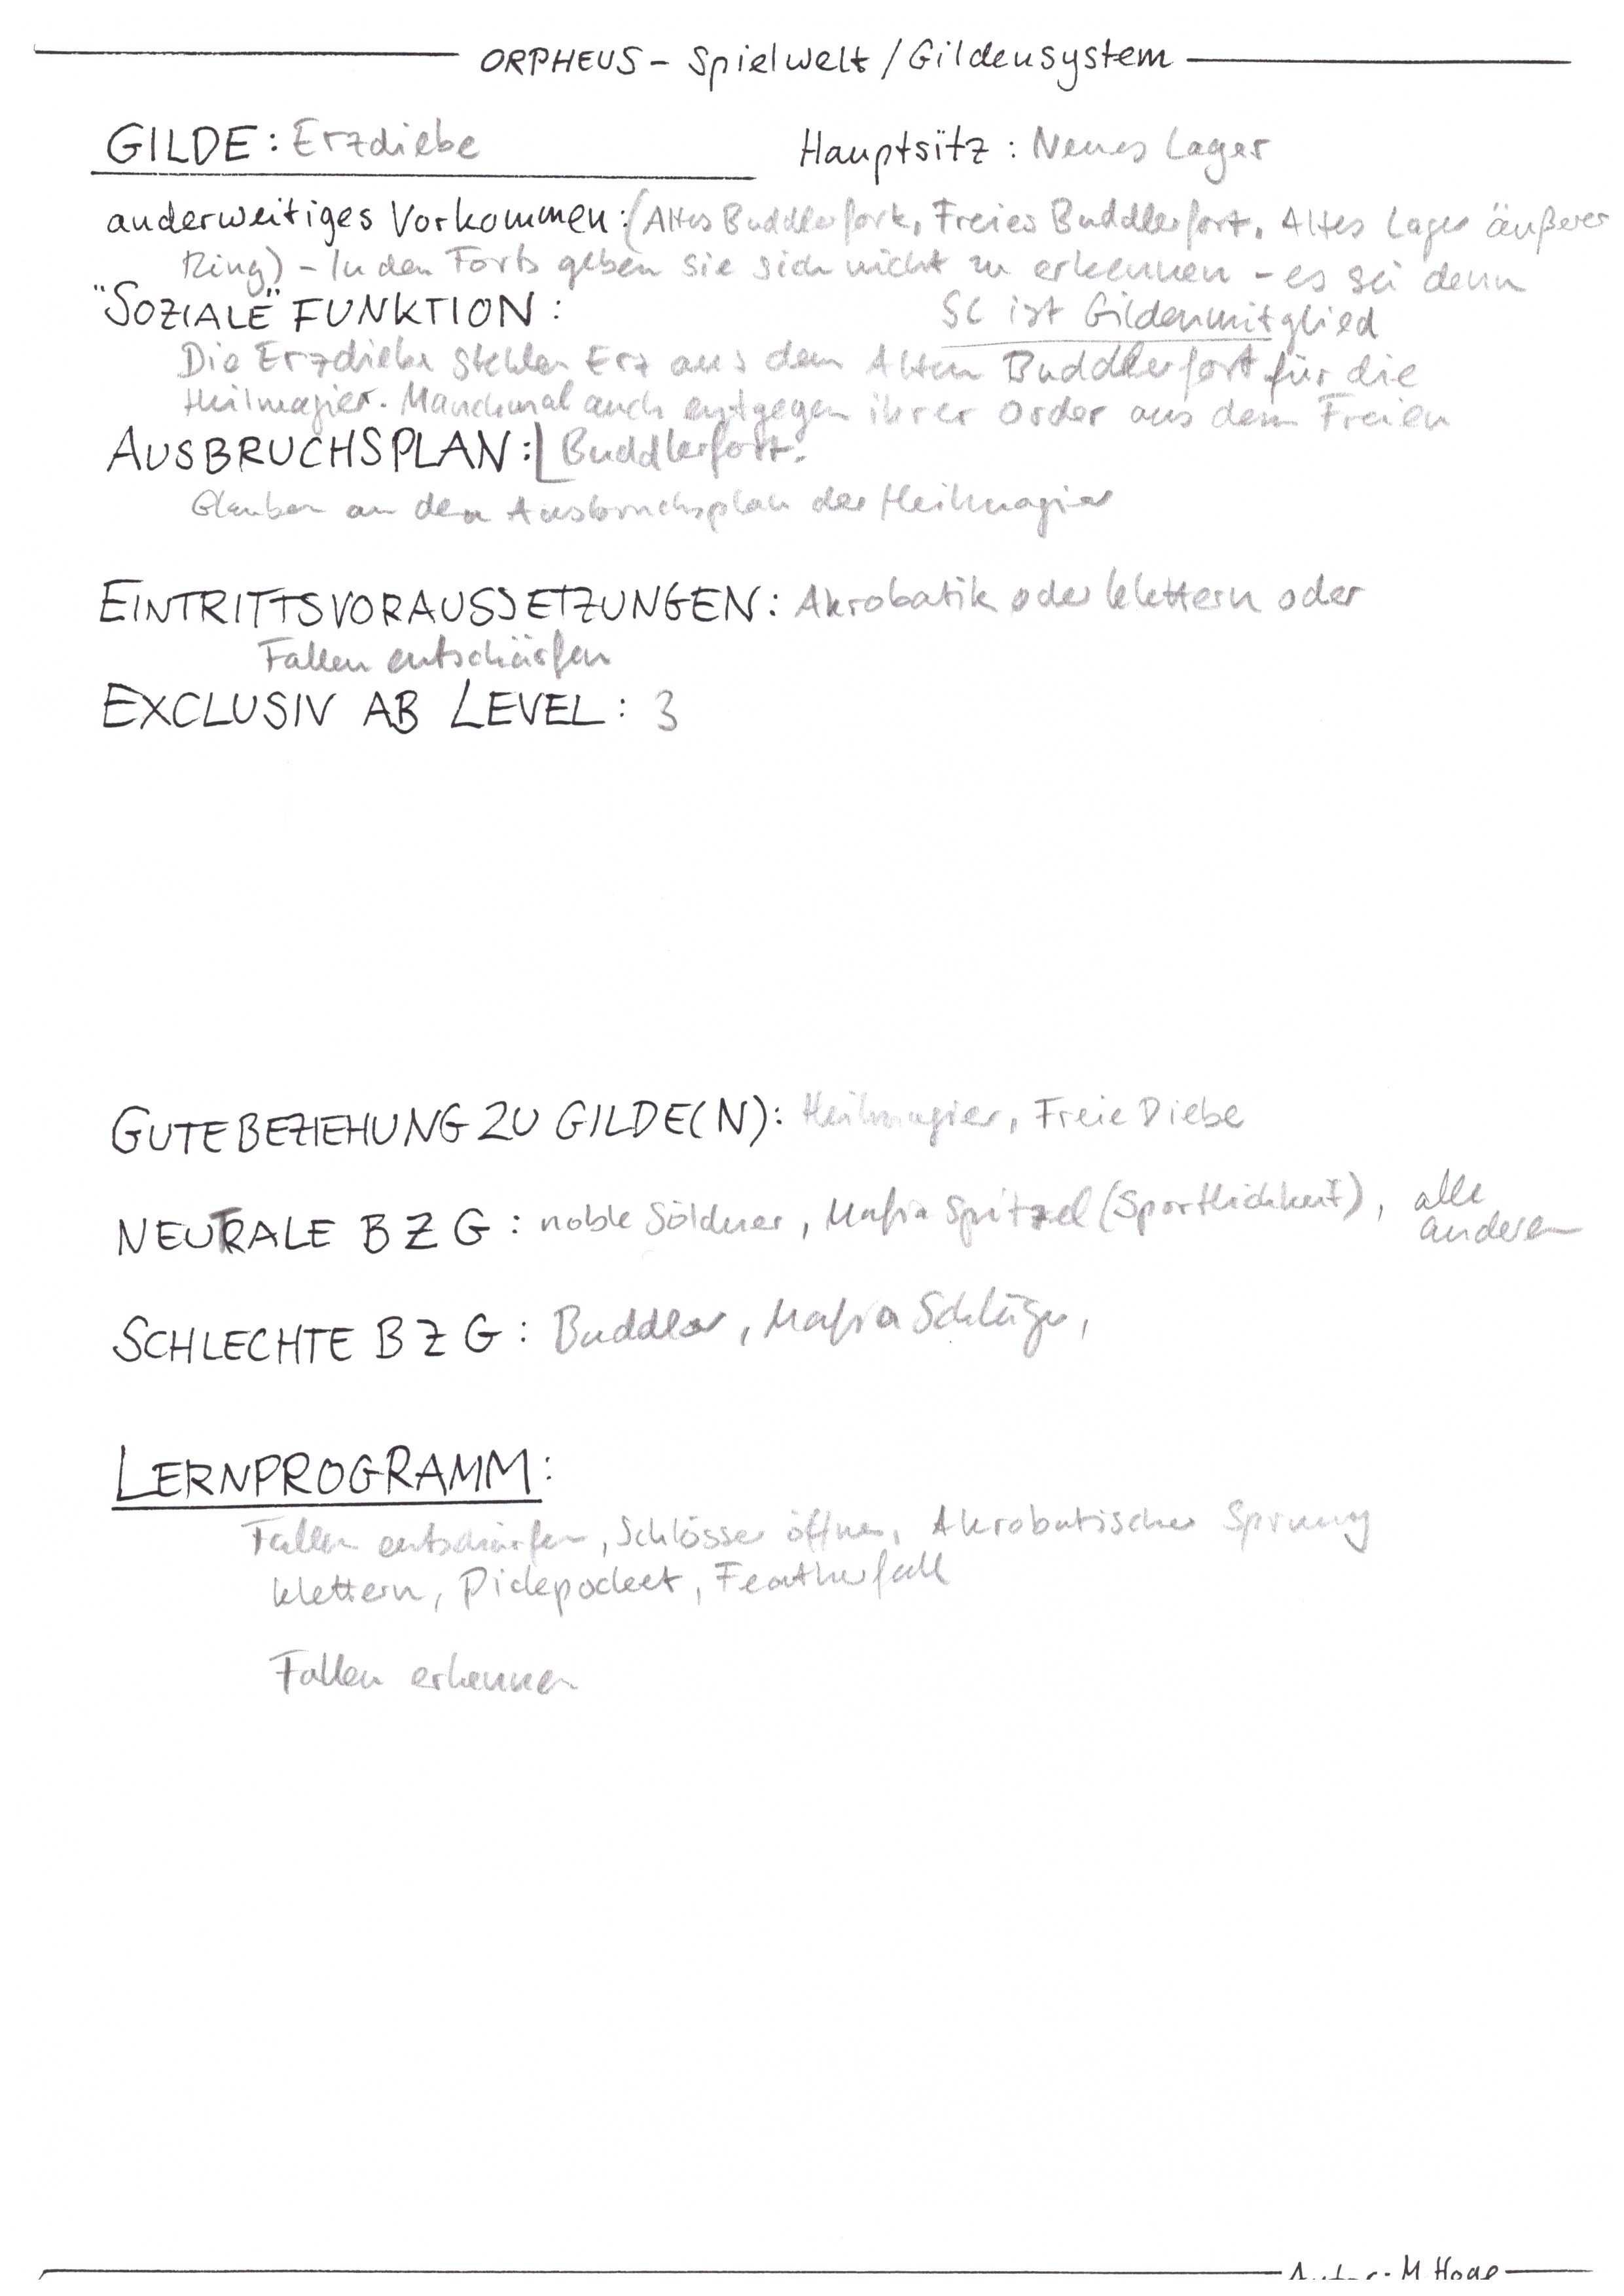 ORPHEUS - Spielwelt / Gildensystem
GILDE: Erzdiebe Hauptsitz: Neues Lager
anderweitiges Vorkommen: (Altes Buddlerfort, Freies Buddlerfort, Altes Lager äußerer
Ring) - In den Forts geben sie sich nicht zu erkennen - es sei denn
SC ist Gildenmitglied
"SOZIALE" FUNKTION:
Die Erzdiebe stehlen Erz aus dem Alten Buddlerfort für die
Heilmagier. Manchmal auch entgegen ihrer Order aus dem Freien
Buddlerfort.
AUSBRUCHSPLAN:
Glauben an den Ausbruchsplan der Heilmagier
EINTRITTSVORAUSSETZUNGEN: Akrobatik oder klettern oder
Fallen entschärfen
EXCLUSIV AB LEVEL: 3
GUTE BEZIEHUNG ZU GILDE(N): Heilmagier, Freie Diebe
NEUTRALE B Z G: noble Söldner, Mafia Spitzel (Sportlichkeit), alle
anderen
SCHLECHTE B Z G: Buddler, Mafia Schläger,
LERNPROGRAMM:
Fallen entschärfen, Schlösser öffnen, Akrobatischer Sprung
klettern, Pickpocket, Featherfall
Fallen erkennen
Autor: M. Hoge